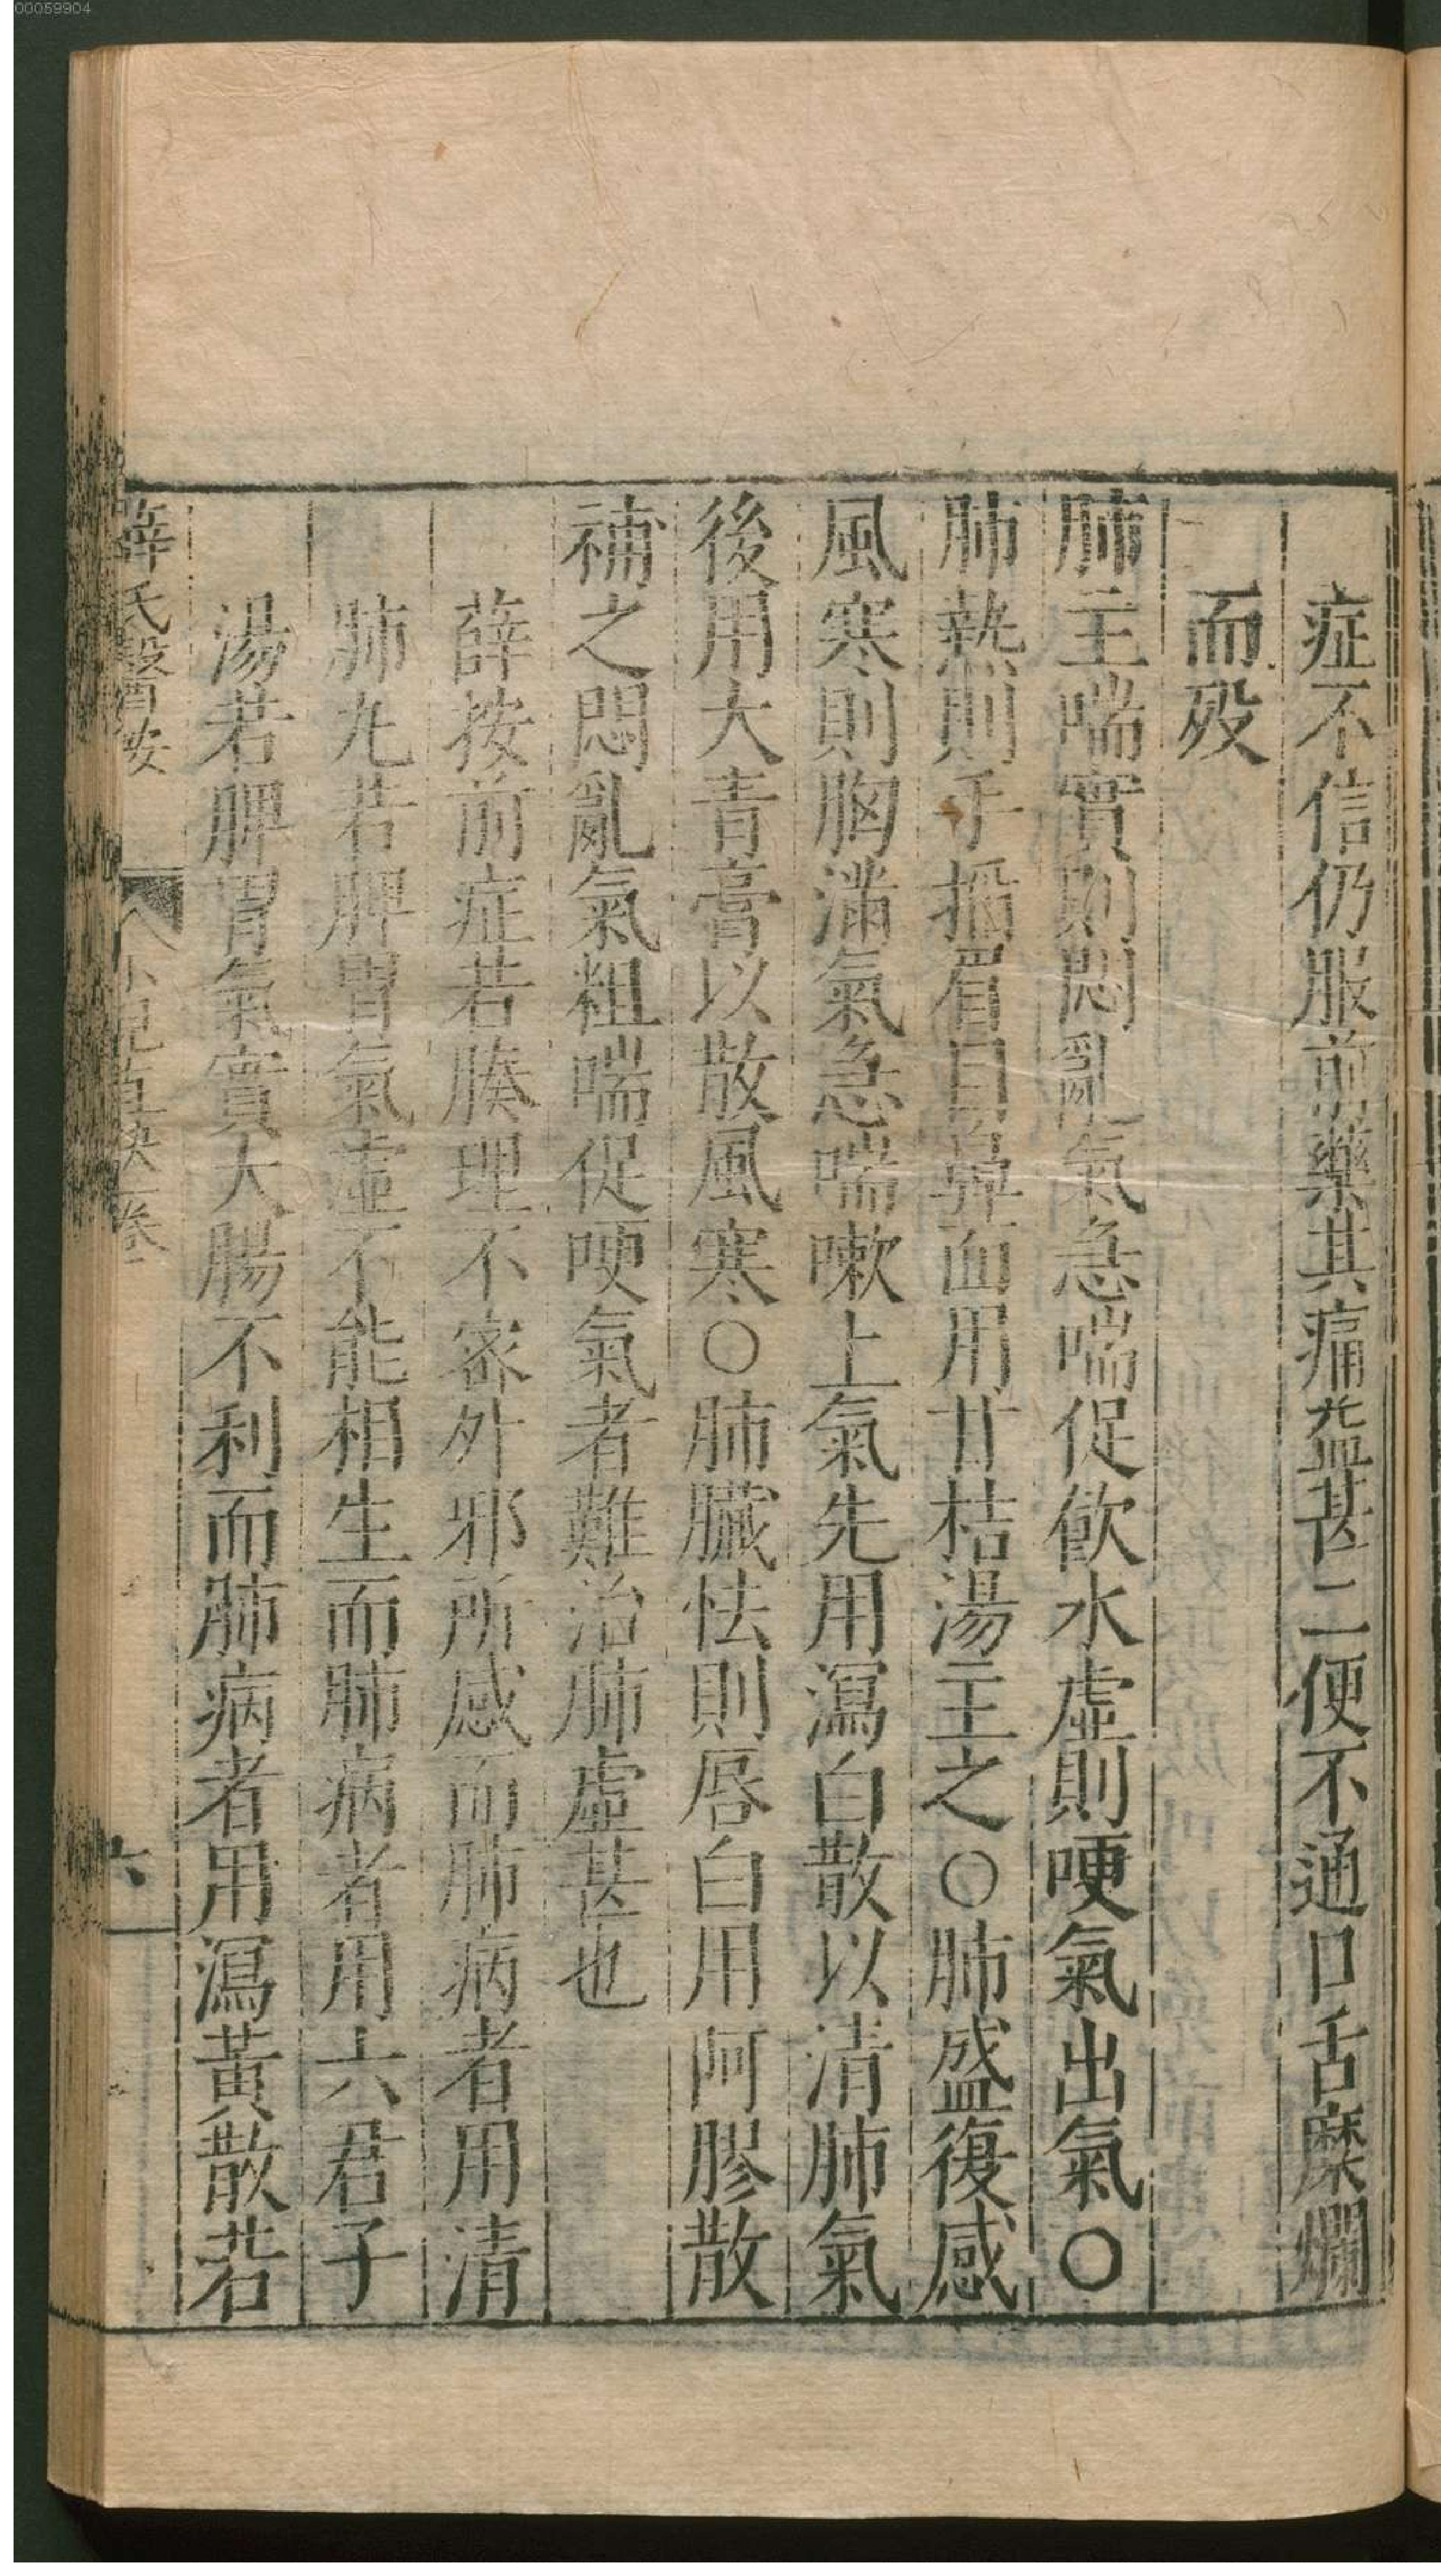 00059904
症不信仍服前藥其痛益甚二便不通口舌糜爛
而歿
肺主喘實則悶亂氣急喘促飲水虛則哽氣出氣〇
肺熱則手掐眉目鼻面用甘桔湯主之〇肺盛復感
風寒則胸滿氣急喘嗽上氣先用瀉白散以清肺氣
後用大青膏以散風寒〇肺臟怯則唇白用阿膠散
補之悶亂氣粗喘促哽氣者難治肺虛甚也
薛按前症若腠理不密外邪所感而肺病者用清
肺丸若脾胃氣虛不能相生而肺病者用六君子
湯若脾胃氣實大腸不利而肺病者用瀉黃散若
薛氏醫按
小兒直訣卷一
六